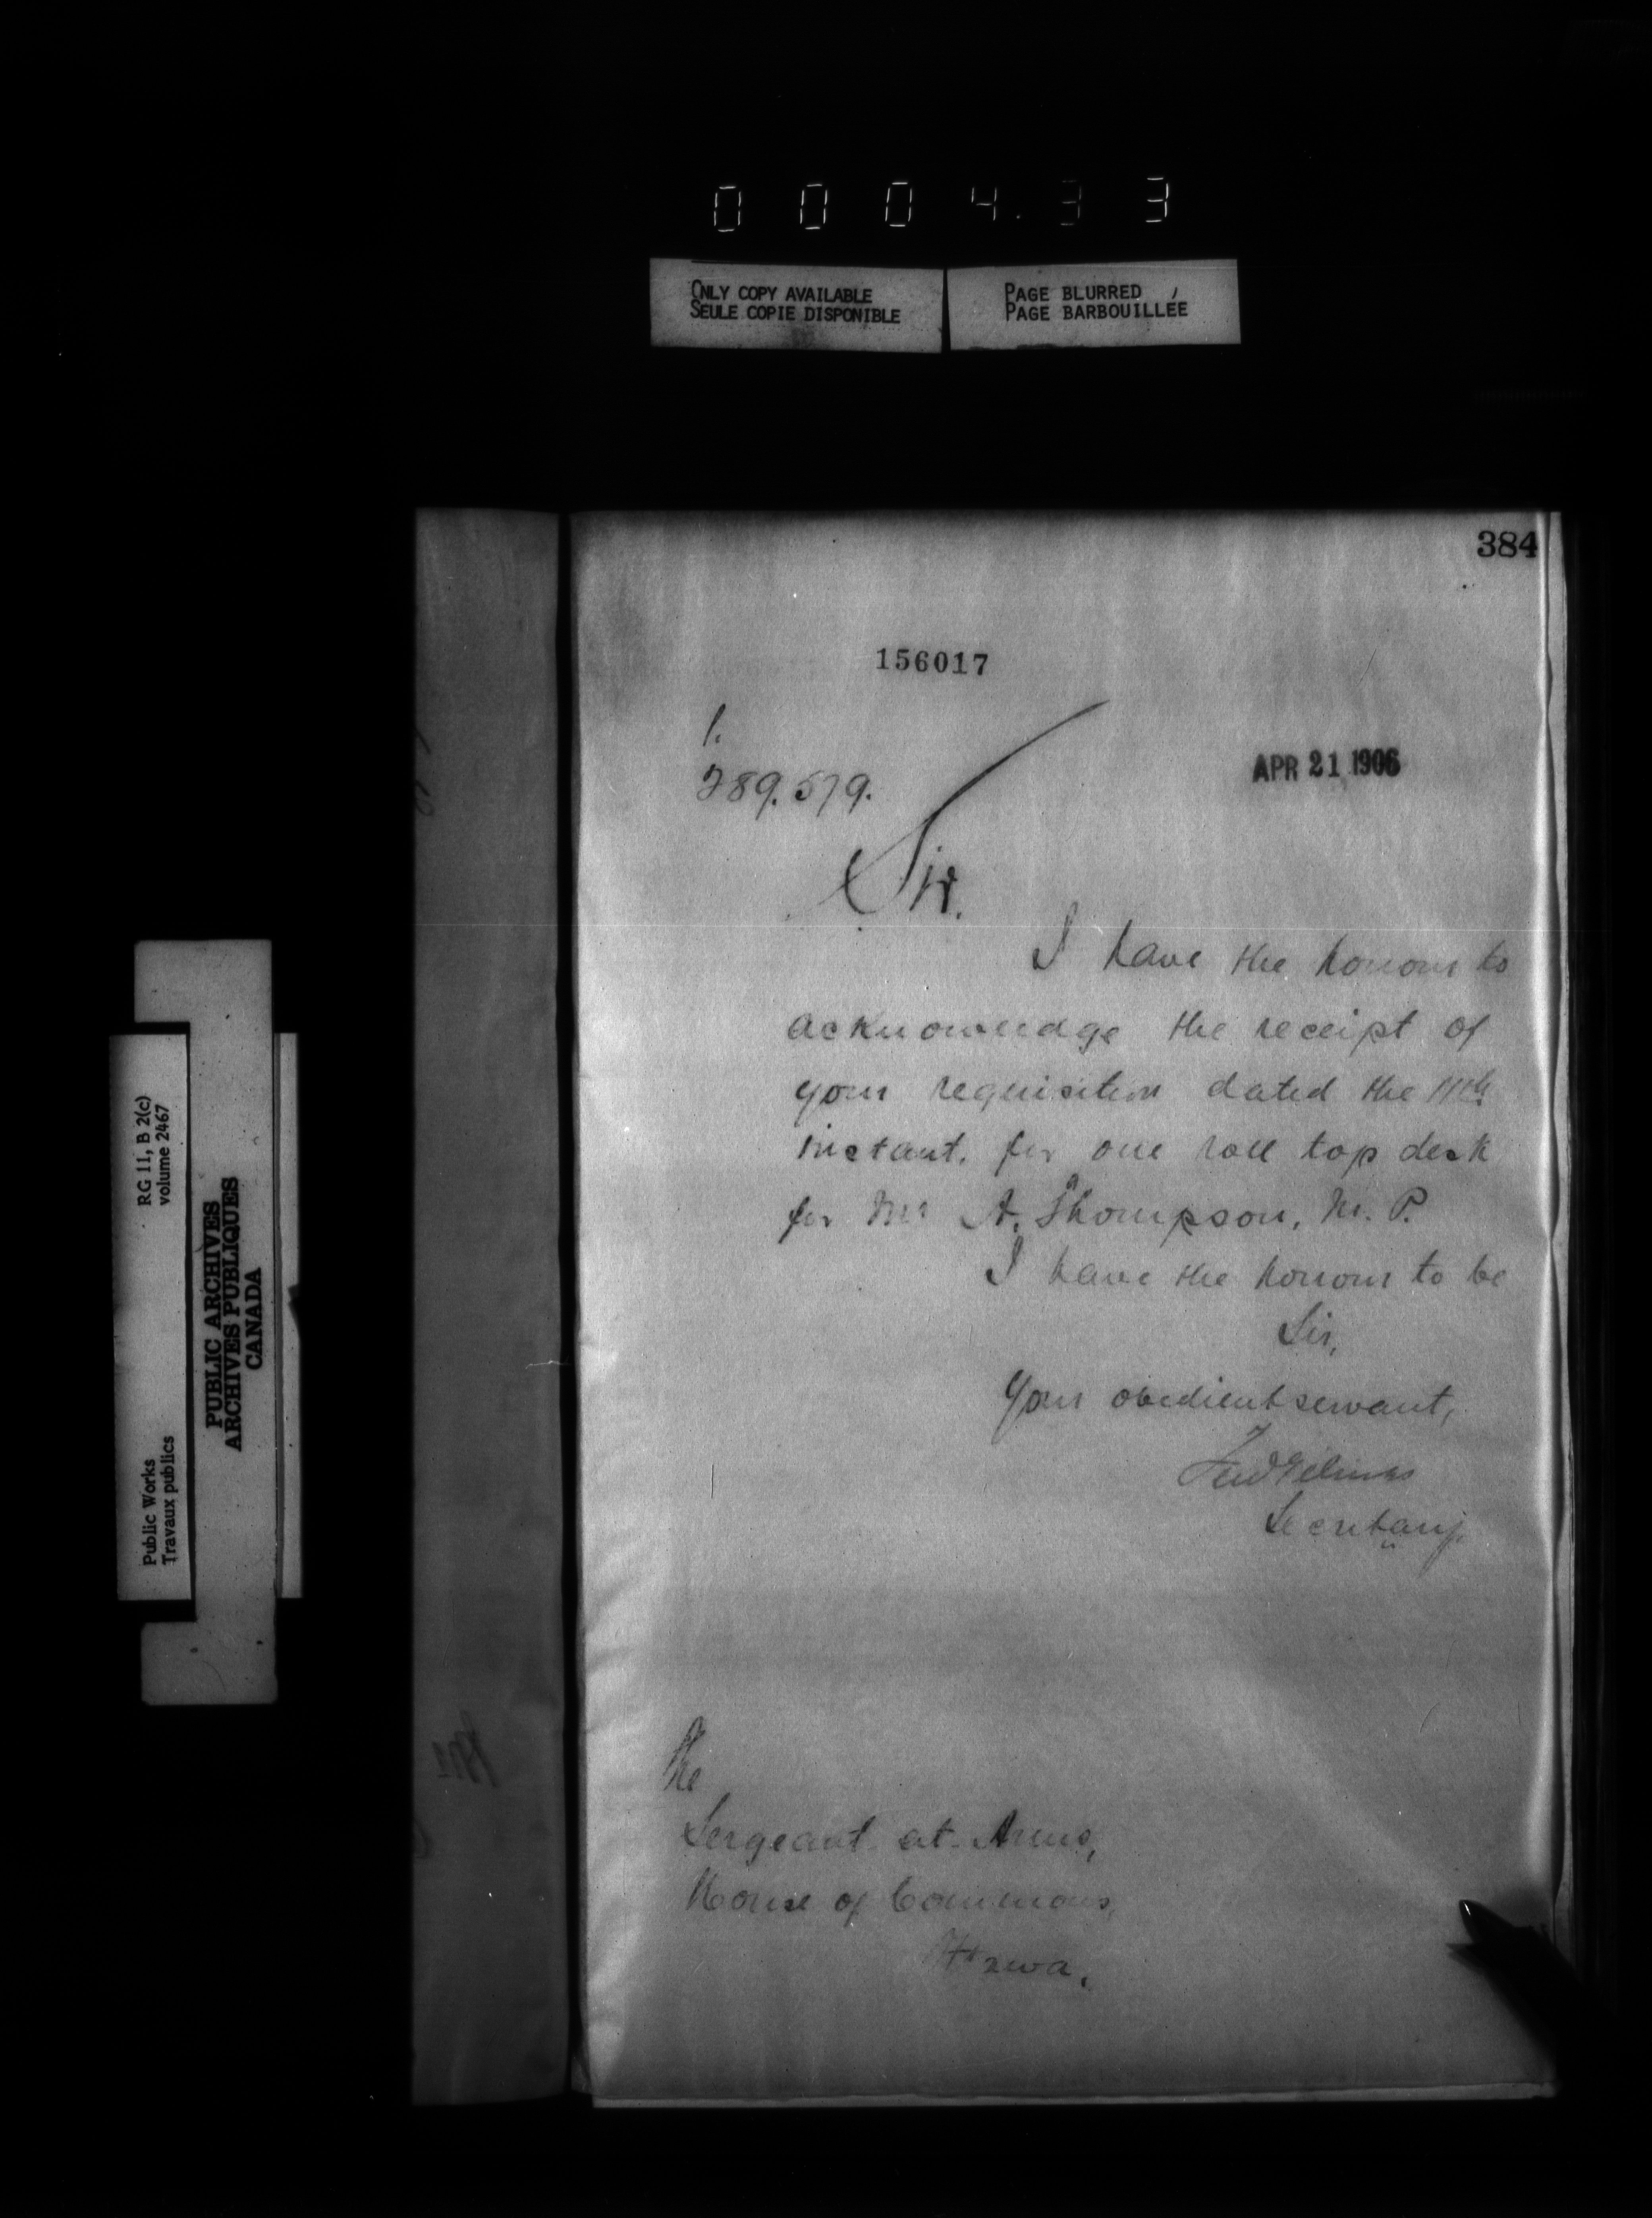 0 0 0 4 . 3 3
ONLY COPY AVAILABLE
SEULE COPIE DISPONIBLE
PAGE BLURRED
PAGE BARBOUILLÉE
RG 11, B 2(c)
volume 2467
PUBLIC ARCHIVES
ARCHIVES PUBLIQUES
CANADA
Public Works
Travaux publics
384
156017
1.
289.579.
APR 21 1906
Sir.
I have the honour to
acknowledge the receipt of
your requisition dated the 11th
instant. for one roll top desk
for Mr A. Thompson, M. P.
I have the honour to be
Sir,
Your obedient servant,
Secretary.
The
Sergeant-at-Arms,
House of Commons,
Ottawa.